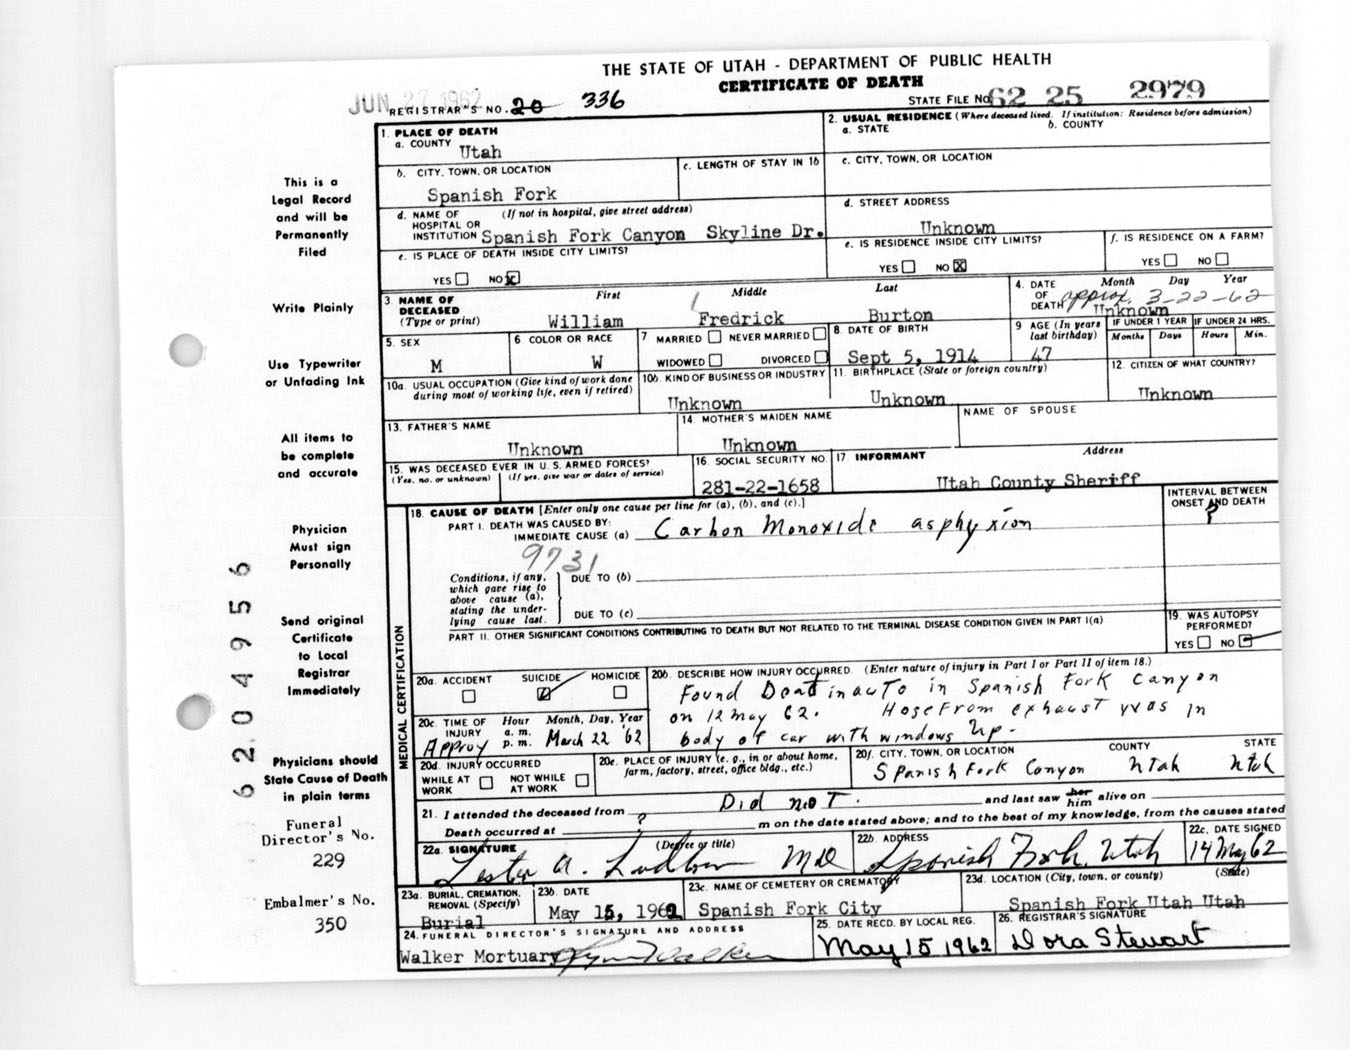 THE STATE OF UTAH - DEPARTMENT OF PUBLIC HEALTH
CERTIFICATE OF DEATH
JUN 27 1962
REGISTRAR'S NO. 20 336
STATE FILE NO. 62 25 2979
1. PLACE OF DEATH
a. COUNTY
Utah
2. USUAL RESIDENCE (Where deceased lived. If institution: Residence before admission)
a. STATE
b. COUNTY
b. CITY, TOWN, OR LOCATION
Spanish Fork
c. LENGTH OF STAY IN 1b
c. CITY, TOWN, OR LOCATION
d. NAME OF HOSPITAL OR INSTITUTION
(If not in hospital, give street address)
Spanish Fork Canyon Skyline Dr.
d. STREET ADDRESS
Unknown
e. IS PLACE OF DEATH INSIDE CITY LIMITS?
YES NO x
e. IS RESIDENCE INSIDE CITY LIMITS?
YES NO X
f. IS RESIDENCE ON A FARM?
YES NO
3. NAME OF DECEASED
(Type or print)
First Middle Last
William Fredrick Burton
4. DATE OF DEATH
Month Day Year
approx. 3-22-62
Unknown
5. SEX
M
6 COLOR OR RACE
W
7 MARRIED NEVER MARRIED
WIDOWED DIVORCED
8. DATE OF BIRTH
Sept 5, 1914
9 AGE (In years last birthday)
47
IF UNDER 1 YEAR
Months Days
IF UNDER 24 HRS.
Hours Min.
10a. USUAL OCCUPATION (Give kind of work done during most of working life, even if retired)
10b. KIND OF BUSINESS OR INDUSTRY
Unknown
11. BIRTHPLACE (State or foreign country)
Unknown
12. CITIZEN OF WHAT COUNTRY?
Unknown
13. FATHER'S NAME
Unknown
14. MOTHER'S MAIDEN NAME
Unknown
NAME OF SPOUSE
15. WAS DECEASED EVER IN U. S. ARMED FORCES?
(Yes, no, or unknown) (If yes, give war or dates of service)
16. SOCIAL SECURITY NO.
281-22-1658
17 INFORMANT
Address
Utah County Sheriff
MEDICAL CERTIFICATION
18. CAUSE OF DEATH [Enter only one cause per line for (a), (b), and (c).]
PART I. DEATH WAS CAUSED BY:
IMMEDIATE CAUSE (a) Carbon Monoxide asphyxion
INTERVAL BETWEEN ONSET AND DEATH
?
9731
Conditions, if any, which gave rise to above cause (a), stating the underlying cause last.
DUE TO (b)
DUE TO (c)
PART II. OTHER SIGNIFICANT CONDITIONS CONTRIBUTING TO DEATH BUT NOT RELATED TO THE TERMINAL DISEASE CONDITION GIVEN IN PART I(a)
19. WAS AUTOPSY PERFORMED?
YES NO
20a. ACCIDENT SUICIDE HOMICIDE
20b. DESCRIBE HOW INJURY OCCURRED. (Enter nature of injury in Part I or Part II of item 18.)
Found Dead in auto in Spanish Fork Canyon
on 12 May 62. Hose From exhaust was in
body of car with windows Up.
20c. TIME OF INJURY
Hour Month, Day, Year
a. m.
p. m.
Approx March 22 '62
20d. INJURY OCCURRED
WHILE AT WORK NOT WHILE AT WORK
20e. PLACE OF INJURY (e. g., in or about home, farm, factory, street, office bldg., etc.)
20f. CITY, TOWN, OR LOCATION COUNTY STATE
Spanish Fork Canyon Utah Utah
21. I attended the deceased from Did not. and last saw her him alive on
Death occurred at ? m on the date stated above; and to the best of my knowledge, from the causes stated
22a. SIGNATURE (Degree or title)
Lester A. MD
22b. ADDRESS
Spanish Fork, Utah
22c. DATE SIGNED
14 May 62
23a. BURIAL, CREMATION, REMOVAL (Specify)
Burial
23b. DATE
May 15, 1962
23c. NAME OF CEMETERY OR CREMATORY
Spanish Fork City
23d. LOCATION (City, town, or county) (State)
Spanish Fork Utah Utah
24. FUNERAL DIRECTOR'S SIGNATURE AND ADDRESS
Walker Mortuary Walker
25. DATE RECD. BY LOCAL REG.
May 15 1962
26. REGISTRAR'S SIGNATURE
Dora Stewart
This is a
Legal Record
and will be
Permanently
Filed
Write Plainly
Use Typewriter
or Unfading Ink
All items to
be complete
and accurate
Physician
Must sign
Personally
Send original
Certificate
to Local
Registrar
Immediately
Physicians should
State Cause of Death
in plain terms
Funeral
Director's No.
229
Embalmer's No.
350
6204956